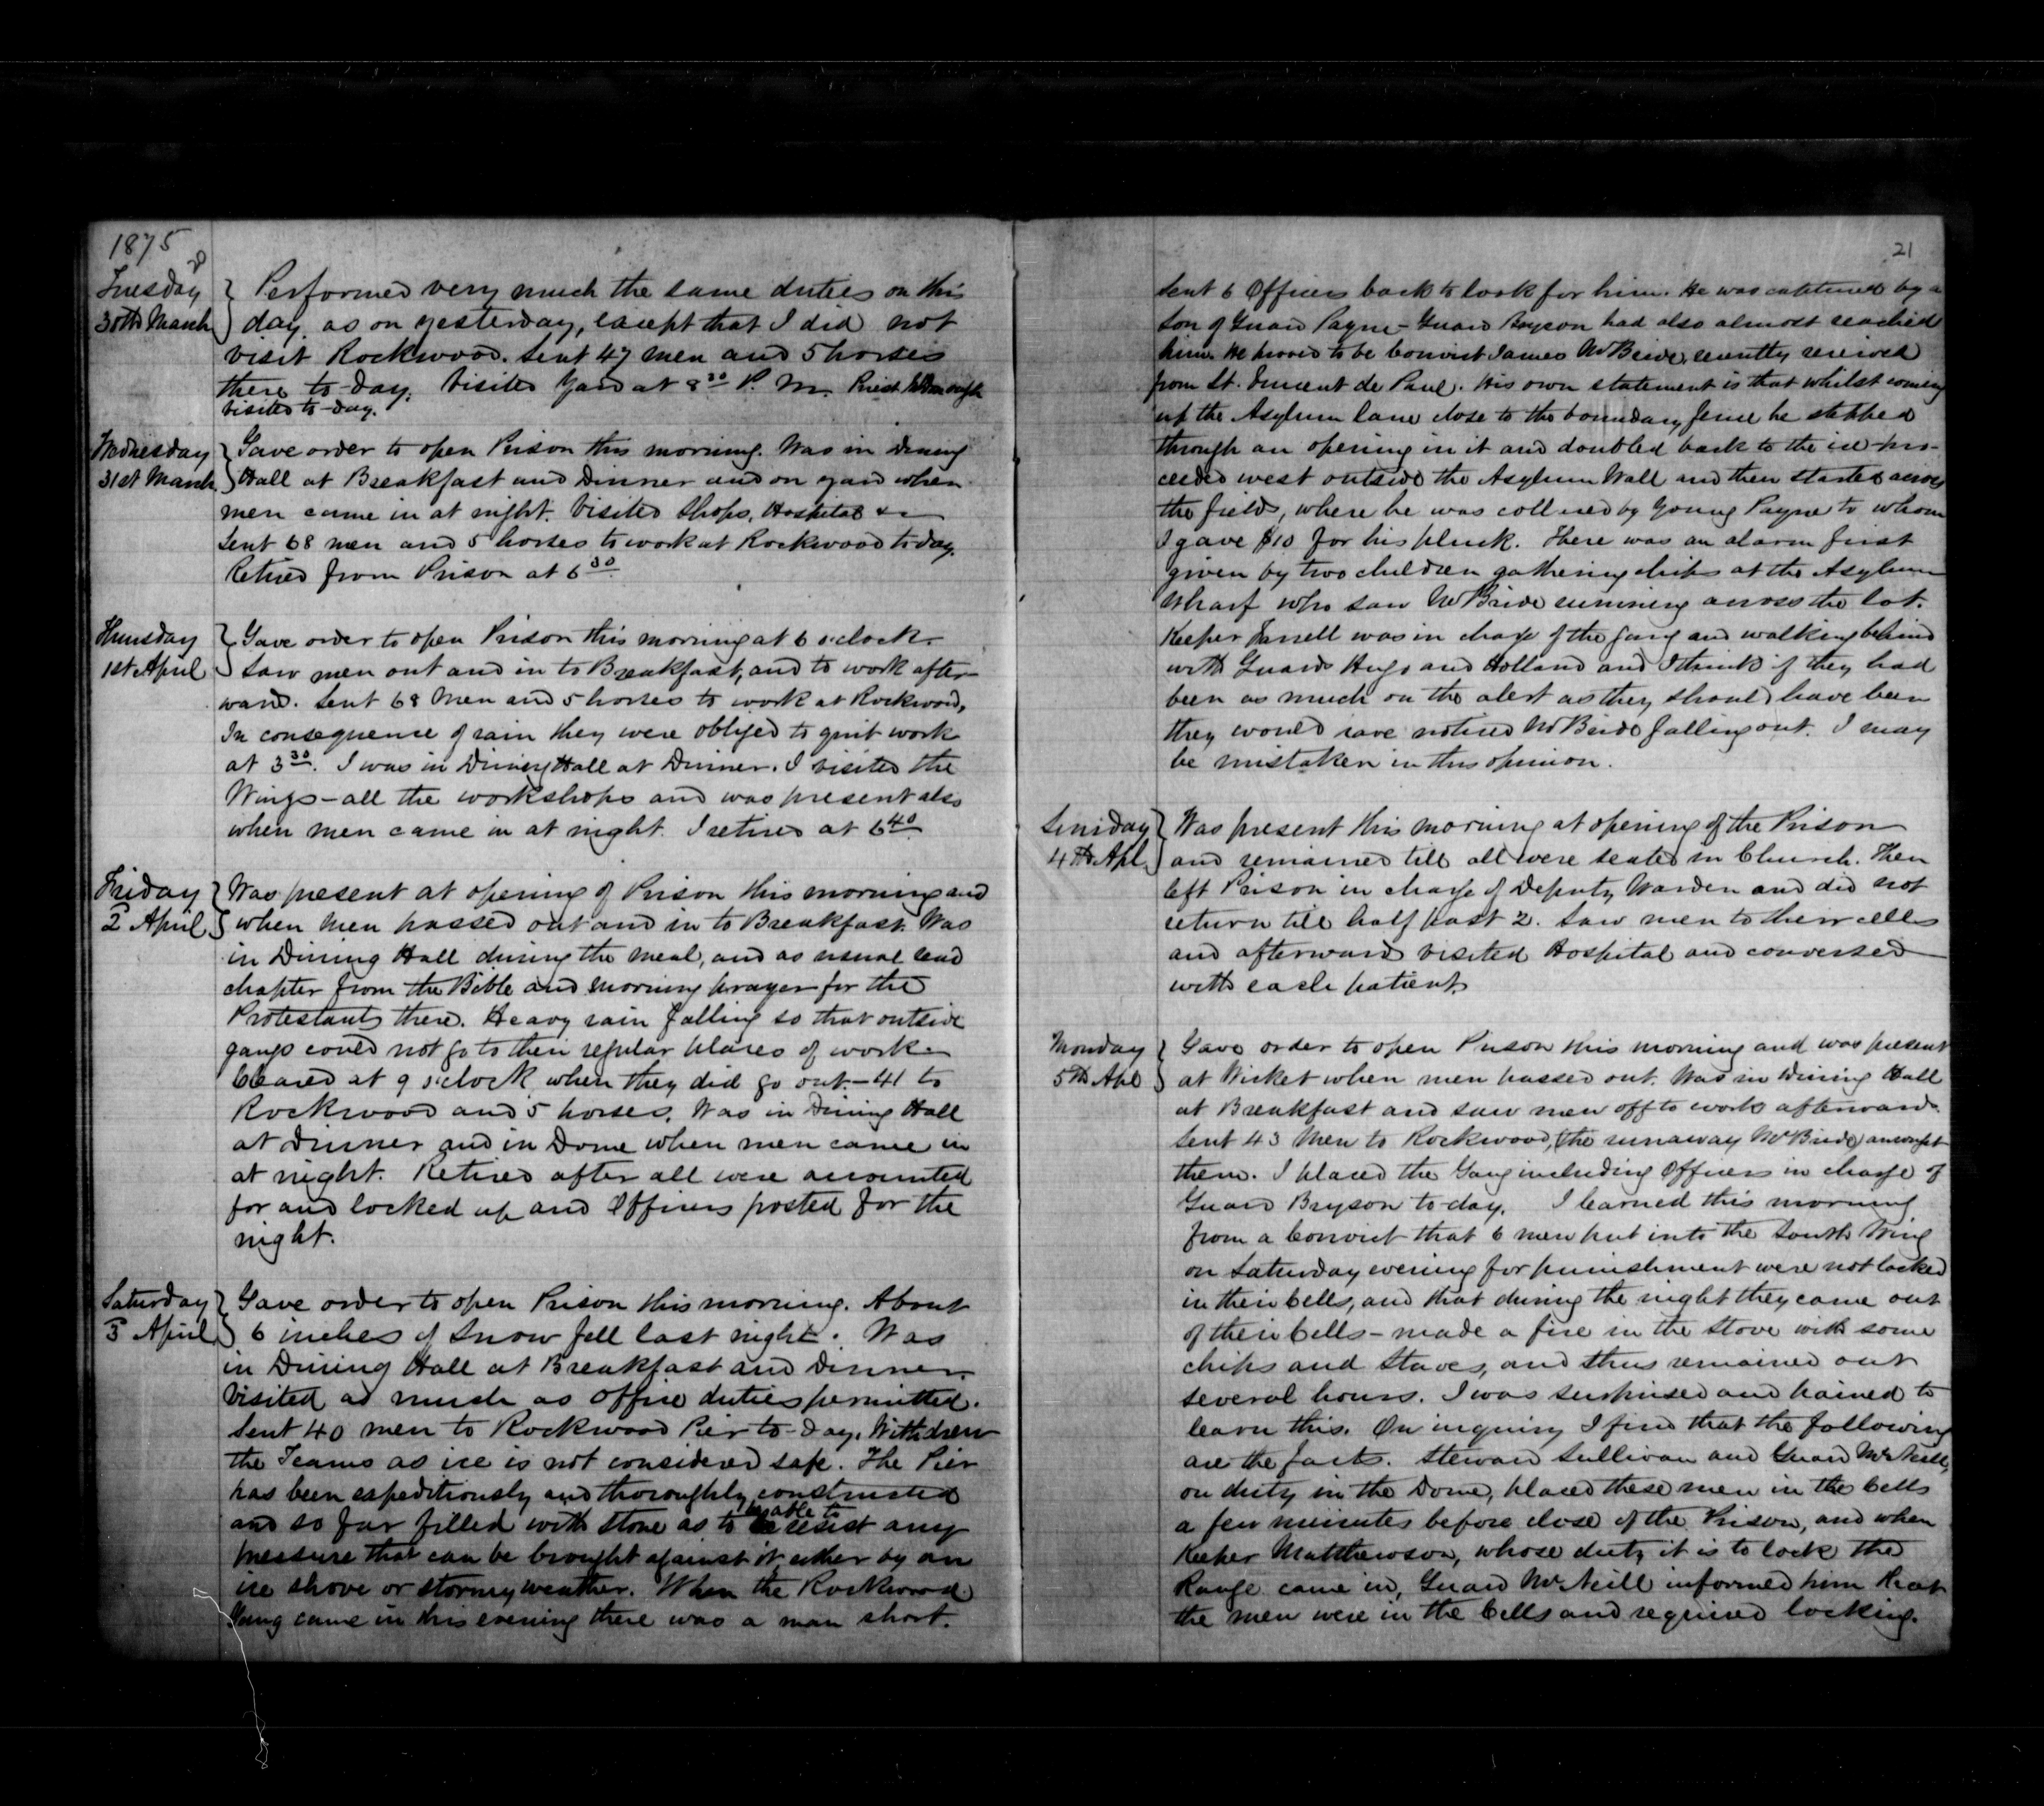 1875
Tuesday
30th March
Performed very much the same duties on this
day, as on yesterday, except that I did not
visit Rockwood. Sent 47 men and 5 horses
there to-day. Visited Yard at 8 30 P. M. Priest McDonough
visited to-day.
Wednesday
31st March
Gave order to open Prison this morning. Was in Dining
Hall at Breakfast and Dinner and on yard when
men came in at night. Visited Shops, Hospital &c
Sent 68 men and 5 horses to work at Rockwood to day.
Retired from Prison at 6 30
Thursday
1st April
Gave order to open Prison this morning at 6 o'clock
Saw men out and in to Breakfast, and to work after-
ward. Sent 68 Men and 5 horses to work at Rockwood,
In consequence of rain they were obliged to quit work
at 3 30. I was in Dining Hall at Dinner. I visited the
Wings - all the workshops and was present also
when men came in at night. I retired at 6 40
Friday
2 April
Was present at opening of Prison this morning and
when men passed out and in to Breakfast. Was
in Dining Hall during the meal, and as usual read
chapter from the Bible and morning prayer for the
Protestants there. Heavy rain falling so that outside
gangs could not go to their regular places of work
Cleared at 9 o'clock when they did go out - 41 to
Rockwood and 5 horses. Was in Dining Hall
at Dinner and in Dome when men came in
at night. Retired after all were accounted
for and locked up and Officers posted for the
night.
Saturday
3 April
Gave order to open Prison this morning. About
6 inches of Snow fell last night. Was
in Dining Hall at Breakfast and Dinner.
Visited as much as office duties permitted.
Sent 40 men to Rockwood Pier to-day. Withdrew
the Teams as ice is not considered safe. The Pier
has been expeditiously and thoroughly constructed
and so far filled with stone as to be able to resist any
pressure that can be brought against it either by an
ice shove or stormy weather. When the Rockwood
Gang came in this evening there was a man short.
21
Sent 6 Officers back to look for him. He was captured by a
son of Guard Payne - Guard Bryson had also almost reached
him. He proved to be Convict James McBride, recently received
from St. Vincent de Paul. His own statement is that whilst coming
up the Asylum lane close to the boundary fence he stepped
through an opening in it and doubled back to the ice - pro-
ceeded west outside the Asylum Wall and then started across
the fields, where he was collared by Young Payne to whom
I gave $10 for his pluck. There was an alarm first
given by two children gathering chips at the Asylum
Wharf who saw McBride running across the lot.
Keeper was in charge of the gang and walking behind
with Guards Hugo and Holland and I think if they had
been as much on the alert as they should have been
they would have noticed McBride falling out. I may
be mistaken in this opinion.
Sunday
4th Apl
Was present this morning at opening of the Prison
and remained till all were seated in Church. Then
left Prison in charge of Deputy Warden and did not
return till half past 2. Saw men to their cells
and afterward visited Hospital and conversed
with each patient.
Monday
5th Apl
Gave order to open Prison this morning and was present
at Wicket when men passed out. Was in Dining Hall
at Breakfast and saw men off to work afterward.
Sent 43 Men to Rockwood, (the runaway McBride) amongst
them. I placed the Gang including Officers in charge of
Guard Bryson to day. I learned this morning
from a Convict that 6 men put into the South Wing
on Saturday evening for punishment were not locked
in their Cells, and that during the night they came out
of their Cells - made a fire in the stove with some
chips and staves, and thus remained out
several hours. I was surprised and pained to
learn this. On inquiry I find that the following
are the facts. Steward Sullivan and Guard McNeill,
on duty in the Dome, placed these men in the Cells
a few minutes before close of the Prison, and when
Keeper Matthewson, whose duty it is to lock the
Range came in, Guard McNeill informed him that
the men were in the Cells and required locking.